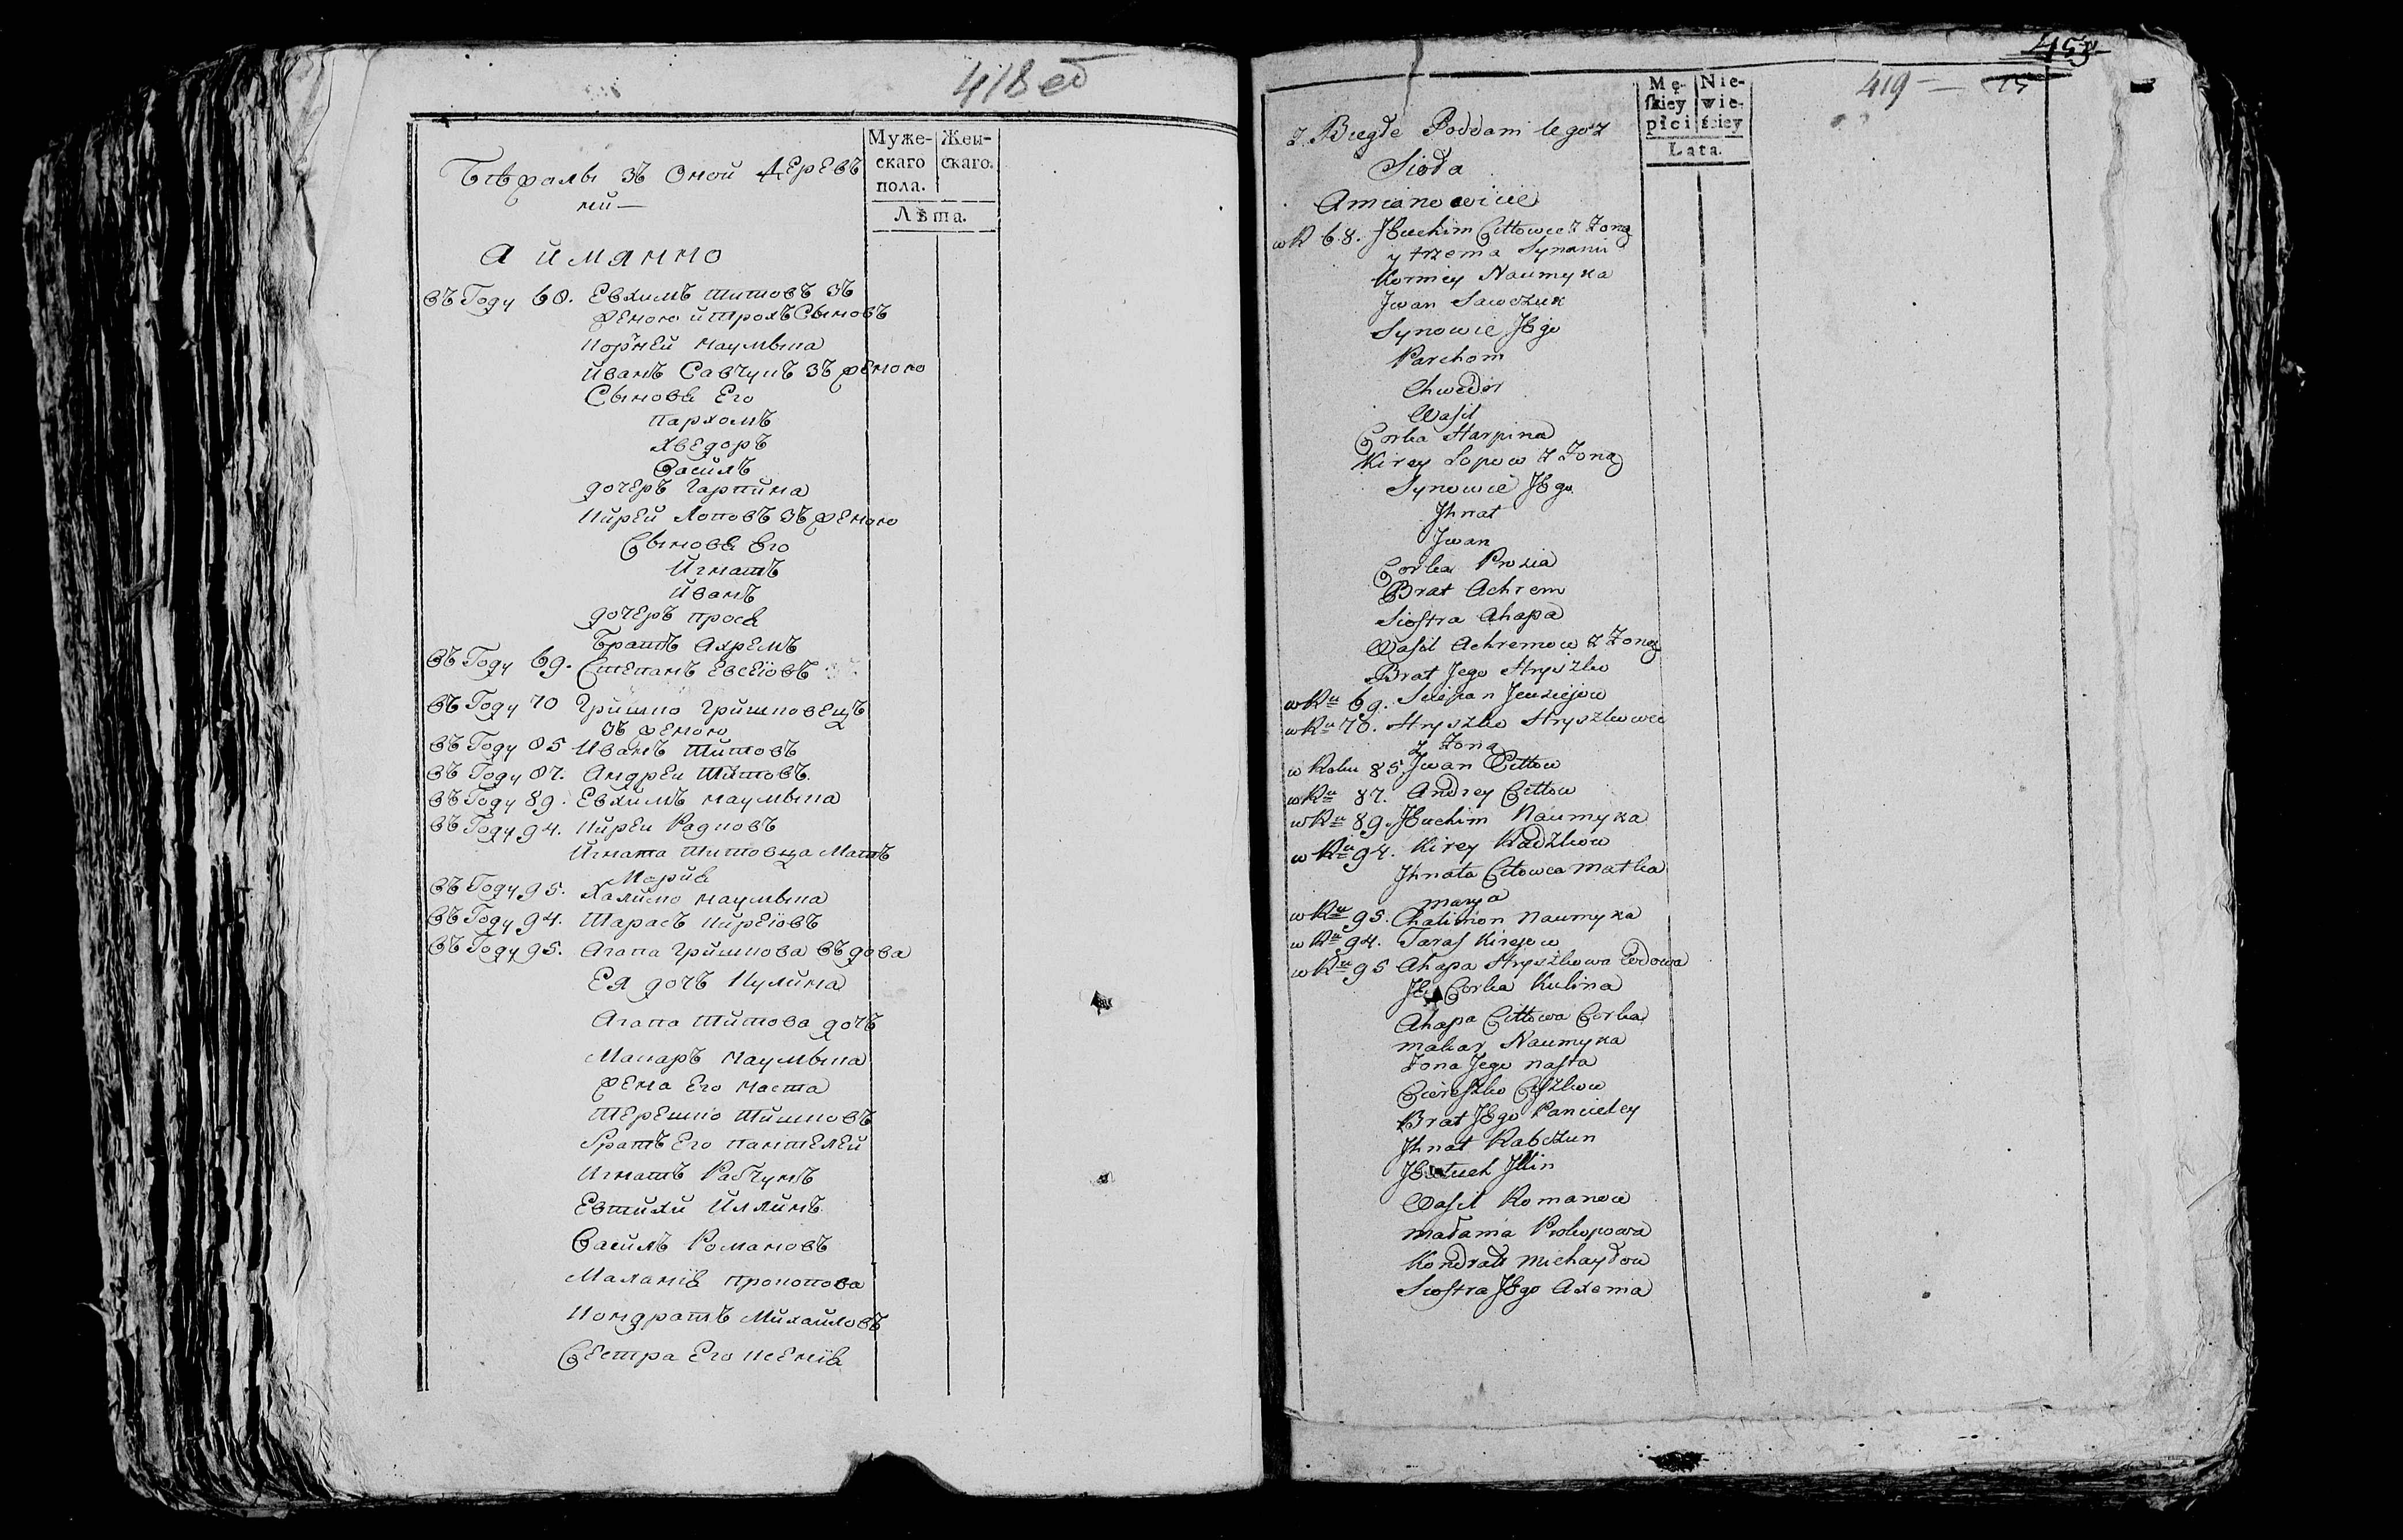 418 об
Муже-
скаго
пола.
Жен-
скаго.
Лѣта.
Бѣжалы зъ Оной Дерев
ни —
А имянно
въ Году 68. Евхимъ титовъ зъ
женою и трохъ Сыновъ
Корней наумыка
Иванъ Савчукъ зъ женою
Сыновѣ Его
пархомъ
хведоръ
Василъ
дочеръ гарпина
Кирей Лоповъ зъ женою
Сыновѣ Его
Игнатъ
Иванъ
дочеръ просѣ
Братъ Ахремъ
въ Году 69. Степанъ Евсеіовъ
въ Году 70 Гришко Гришковецъ
зъ женою
въ Году 85 Иванъ титовъ
въ Году 87. Андреи титовъ.
въ Году 89. Евхимъ наумыка
въ Году 94. Киреи Радковъ
Игната титовца Матъ
Маріѣ
въ Году 95. Халимо наумыка
въ Году 94. Тарасъ киреіовъ
въ Году 95. Агапа Гришкова въдова
Ея дочъ Кулина
Агапа титова дочъ
Макаръ наумыка
жена Его наста
терешко тишковъ
Братъ Его пантелей
Игнатъ Рабчунъ
Евтихи Иллинъ
Василъ Романовъ
Маланіѣ прокопова
Кондратъ Михаиловъ
Сестра Его ксеніѣ
419 —
Mę-
skiey
płci
Nie-
wie-
ściey
Lata.
z Biegłe Poddani tego z
Sioła
Amianowice
w R 68. JEuchim Cittowiec z Zoną
y trzema Synami
Korniey Naumyka
Jwan Sawczuk
Synowie JEgo
Parchom
Chwedor
Wasil
Corka Harpina
Kirey Łopow z Zoną
Synowie JEgo
Jhnat
Jwan
Corka Prosia
Brat Achrem
Siostra Ahapa
Wasil Achremow z Zoną
Brat Jego Hryszko
w Ru 69. Sciepan Jeusiejow
w Ru 70. Hryszko Hryszkowiec
z Zoną
w Roku 85. Jwan Cittow
w Ru 87. Andrey Cittow
w Ru 89. JEuchim Naumyka
w Ru 94. Kirey Radzkow
Jhnata Citowca Matka
marya
w Ru 95. Chalimon Naumyka
w Ru 94. Taras Kirejow
w Ru 95 Ahapa Hryszkowa Wdowa
JEy Corka Kulina
Ahapa Cittowa Corka
makar Naumyka
Zona Jego nasta
Ciereszko Ciszkow
Brat JEgo Pancieley
Jhnat Rabczun
JEutuch Jllin
Wasil Romanow
małania Prokopowa
Kondrat michayłow
Siostra JEgo Axenia